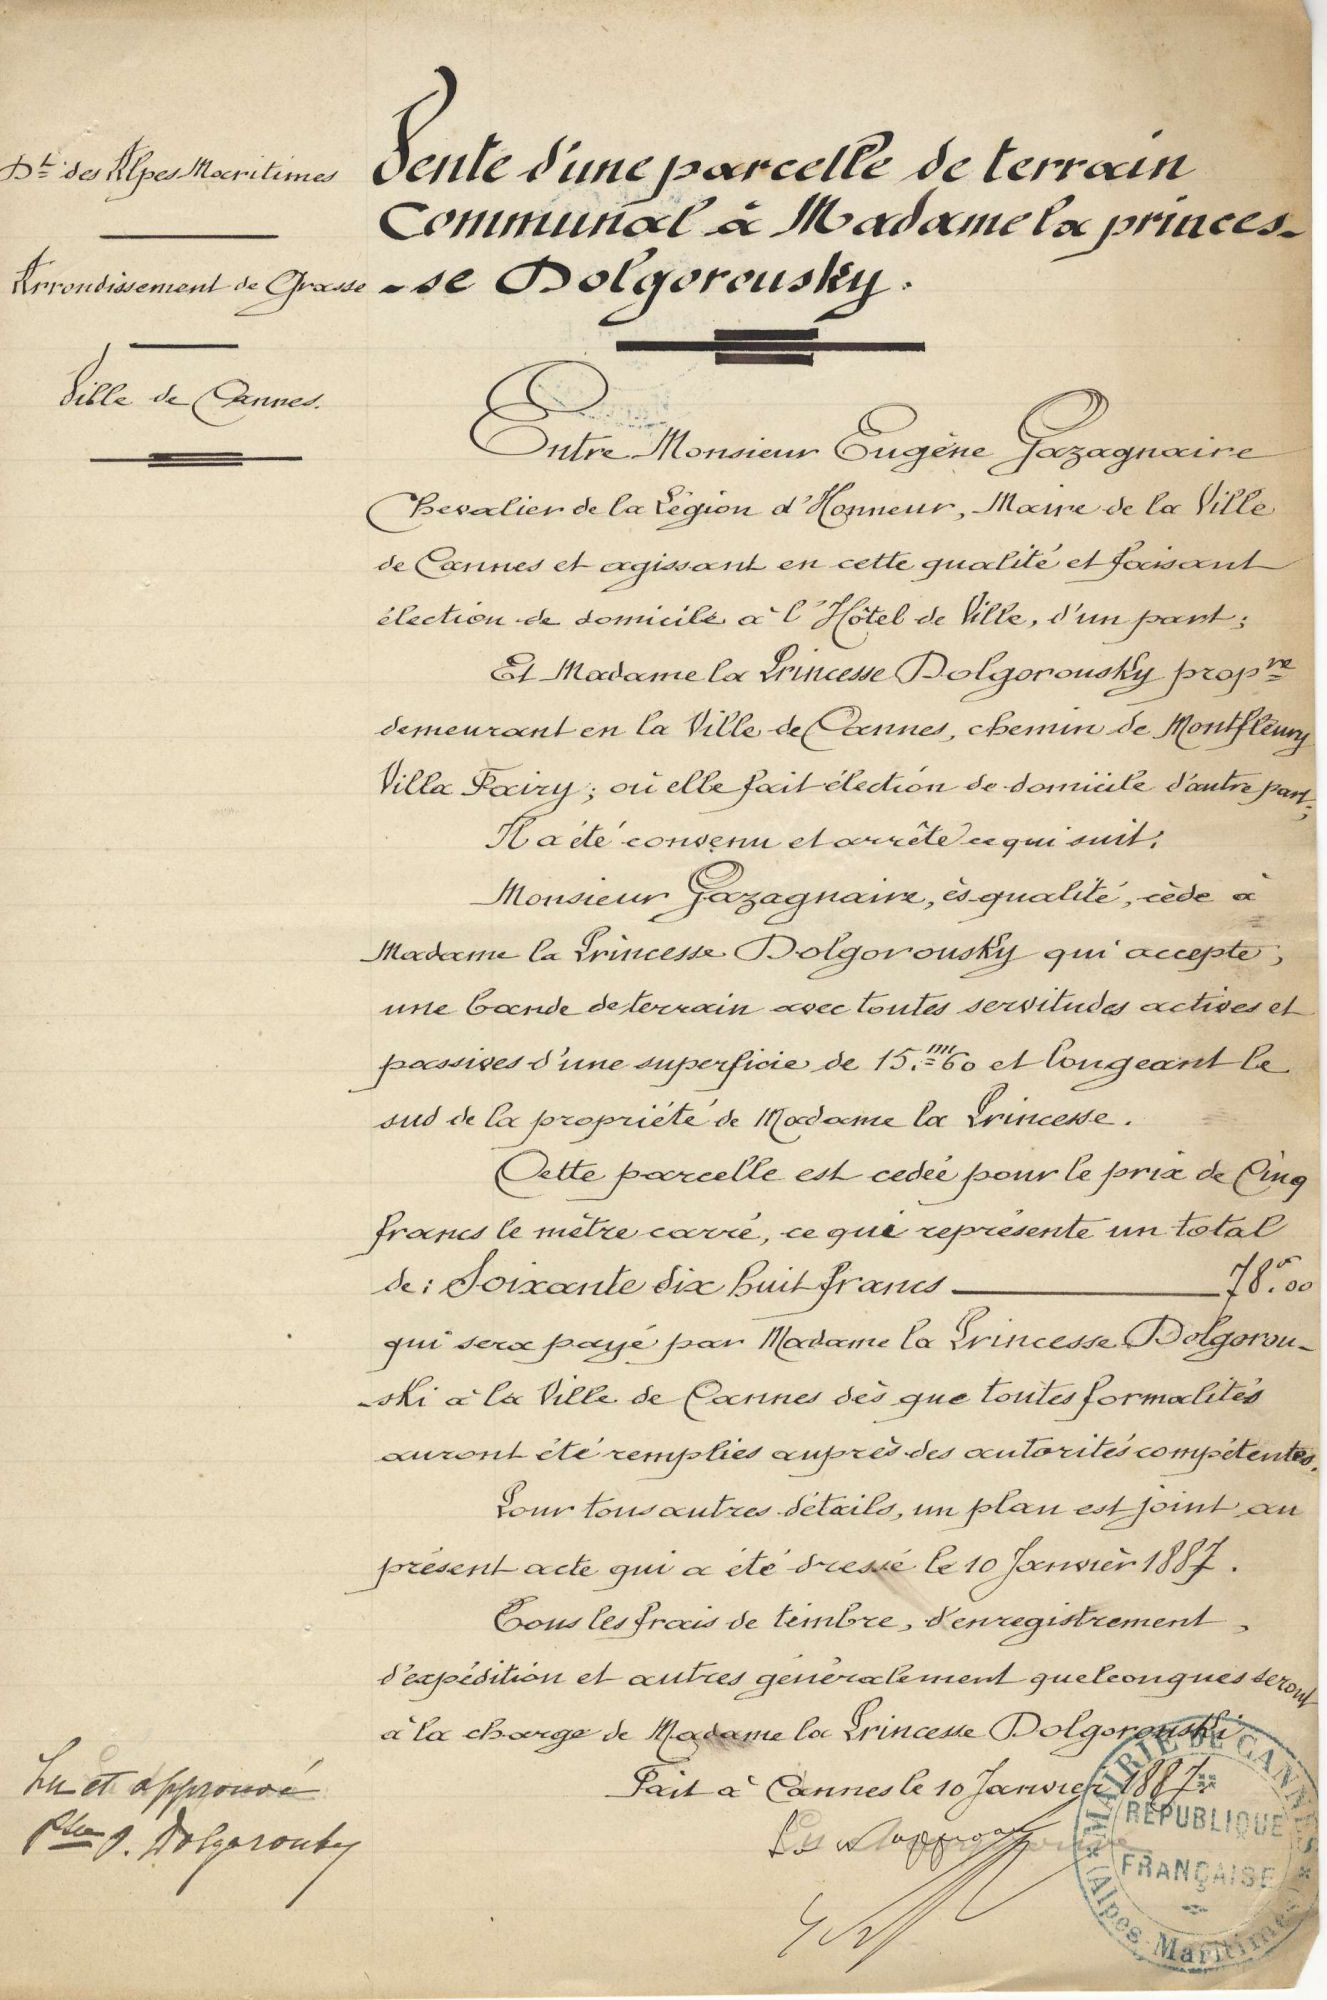 Dt des Alpes Maritimes
Arrondissement de Grasse
Ville de Cannes.
Vente d'une parcelle de terrain
Communal à Madame la princes-
-se Dolgorousky.
Entre Monsieur Eugène Gazagnaire
Chevalier de la Légion d'Honneur, Maire de la Ville
de Cannes et agissant en cette qualité et faisant
élection de domicile à l'Hôtel de Ville, d'un part;
Et Madame la Princesse Dolgorousky propre
demeurant en la Ville de Cannes, chemin de Montfleury
Villa Fairy; où elle fait élection de domicile d'autre part;
Il a été convenu et arrêté ce qui suit:
Monsieur Gazagnaire, ès qualité, cède à
Madame la Princesse Dolgorousky qui accepte,
une bande de terrain avec toutes servitudes actives et
passives d'une superficie de 15.m60 et longeant le
sud de la propriété de Madame la Princesse.
Cette parcelle est cedée pour le prix de Cinq
francs le mètre carré, ce qui représente un total
de: Soixante dix huit francs 78.00
qui sera payé par Madame la Princesse Dolgorou-
-ski à la Ville de Cannes dès que toutes formalités
auront été remplies auprès des autorités compétentes.
Pour tous autres détails, un plan est joint au
présent acte qui a été dressé le 10 Janvier 1887.
Tous les frais de timbre, d'enregistrement,
d'expédition et autres généralement quelconques seront
à la charge de Madame la Princesse Dolgorouski
Fait à Cannes le 10 Janvier 1887.
Lu et approuvé
Lu et approuvé
Pcesse O. Dolgorouky
MAIRIE DE CANNES
RÉPUBLIQUE
FRANÇAISE
(Alpes-Maritimes)